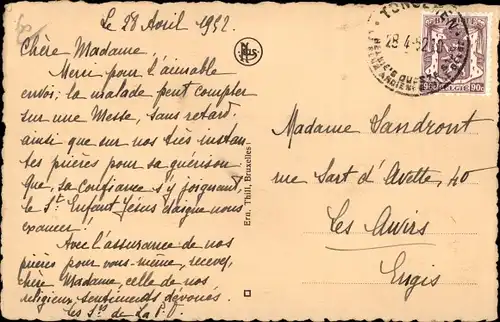 Le 28 Avril 1952.
Chère Madame,
Merci pour l'aimable
envoi; la malade peut compter
sur une Messe, sans retard,
ainsi que sur nos très instan
tes prières pour sa guérison
Que, sa confiance s'y joignant,
le St. Enfant Jésus daigne nous
exaucer!
Avec l'assurance de nos
prières pour vous-même, recevez,
chère Madame, celle de nos
religieux sentiments dévoués.
Les Srs de La P. J.
Nels
Ern. Thill, Bruxelles
28-4-52
BELGIE
90c
90c
Madame Landront
rue Sart d'Avette, 40
Les Awirs
Engis